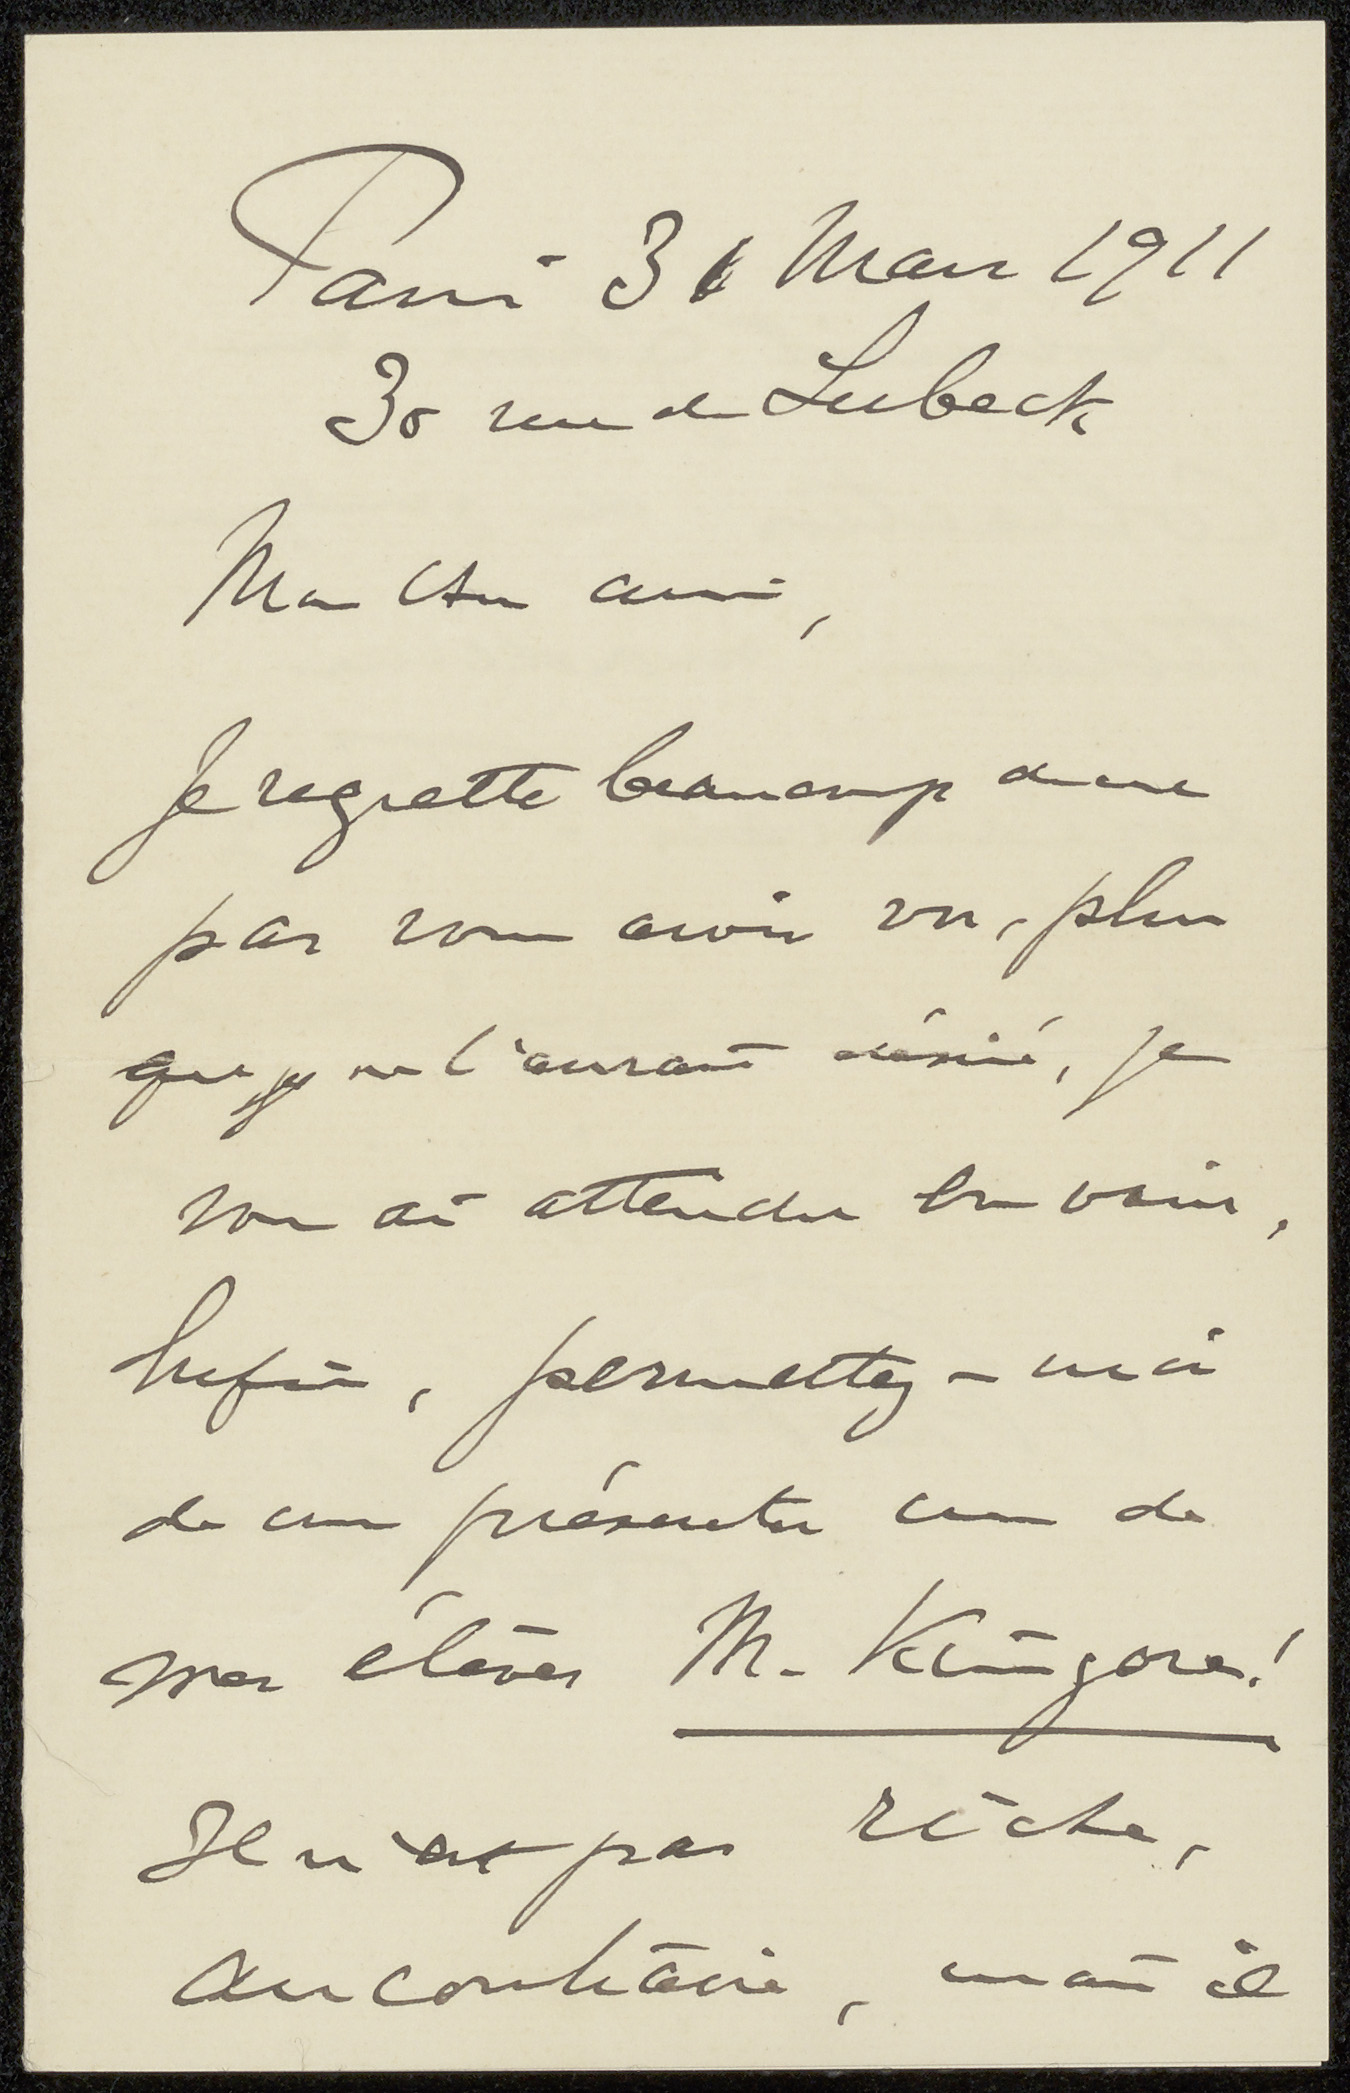 Paris 31 Mars 1911
30 rue de Lubeck
Mon cher ami,
Je regrette beaucoup de ne
pas vous avoir vu, plus
que je ne l'aurais désiré, je
vous ai attendu en vain,
Enfin, permettez-moi
de vous présenter un de
mes élèves M. Kingore!
Il n'est pas riche,
au contraire, mais il